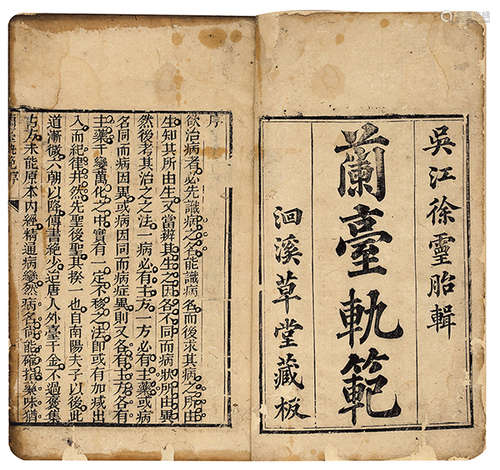 吳江徐靈胎輯
蘭臺軌範
洄溪草堂藏板
序
欲治病者必先識病之名能識病名而後求其病之所由
生知其所由生又當辨其生之因各不同而病狀所由異
然後考其治之之法一病必有主方一方必有主藥或病
名同而病因異或病因同而病症異則又各有主方各有
主藥千變萬化之中實有一定不移之法即或有加減出
入而紀律井然先聖後聖其揆一也自南陽夫子以後此
道漸微六朝以降傳書絕少迨唐人外臺千金不過裒集
古方未能原本內經精通病變然病名尚能確指藥味猶